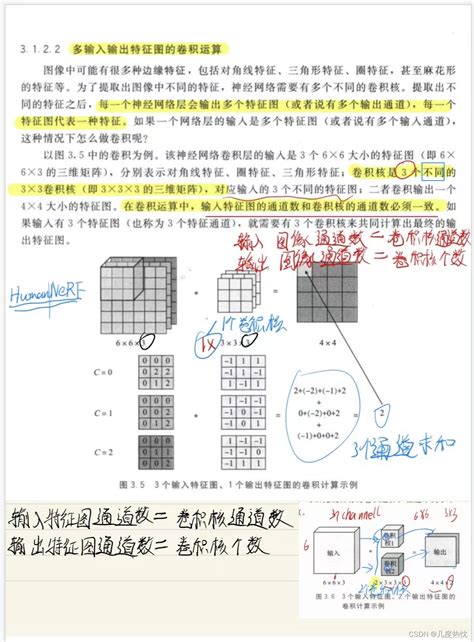 3.1.2.2 多输入输出特征图的卷积运算
图像中可能有很多种边缘特征，包括对角线特征、三角形特征、圈特征，甚至麻花形
的特征等。为了提取出图像中不同的特征，神经网络需要有多个不同的卷积核。提取出不
同的特征之后，每一个神经网络层会输出多个特征图（或者说有多个输出通道），每一个
特征图代表一种特征。如果一个网络层的输入是多个特征图（或者说有多个输入通道），
这种情况下怎么做卷积呢?
以图 3.5 中的卷积为例。该神经网络卷积层的输入是 3 个 6×6 大小的特征图（即 6×
6×3 的三维矩阵），分别表示对角线特征、圈特征、三角形特征；卷积核是 3 个不同的
3×3卷积核（即 3×3×3 的三维矩阵），对应输入的 3 个不同的特征图；二者卷积输出一个
4×4 大小的特征图。在卷积运算中，输入特征图的通道数和卷积核的通道数必须一致。如
果输入有 3 个特征图（也称为 3 个特征通道），就需要有 3 个卷积核来共同计算出最终的输
出特征图。
输入 图像通道数 = 卷积核通道数
输出 图像通道数 = 卷积核个数
HumanNeRF
1个卷积核
6×6×3
1×
3×3×3
4×4
C=0
0 0 0
0 2 2
0 1 2
-1 1 1
-1 1 -1
C=1
0 0 0
0 1 1
0 1 2
C=2
0 0 0
2+(-2)+(-1)+2
+
0+(-2)+0+2
+
(-1)+0+0+2
2
3个通道求和
图 3.5 3 个输入特征图、1 个输出特征图的卷积计算示例
输入特征图通道数 = 卷积核通道数
输出特征图通道数 = 卷积核个数
channel
6
输入
6×6×3
卷积核1
卷积核2
输出
图 3.6 3 个输入特征图、2 个输出特征图的
卷积计算示例
CSDN @几度热忱